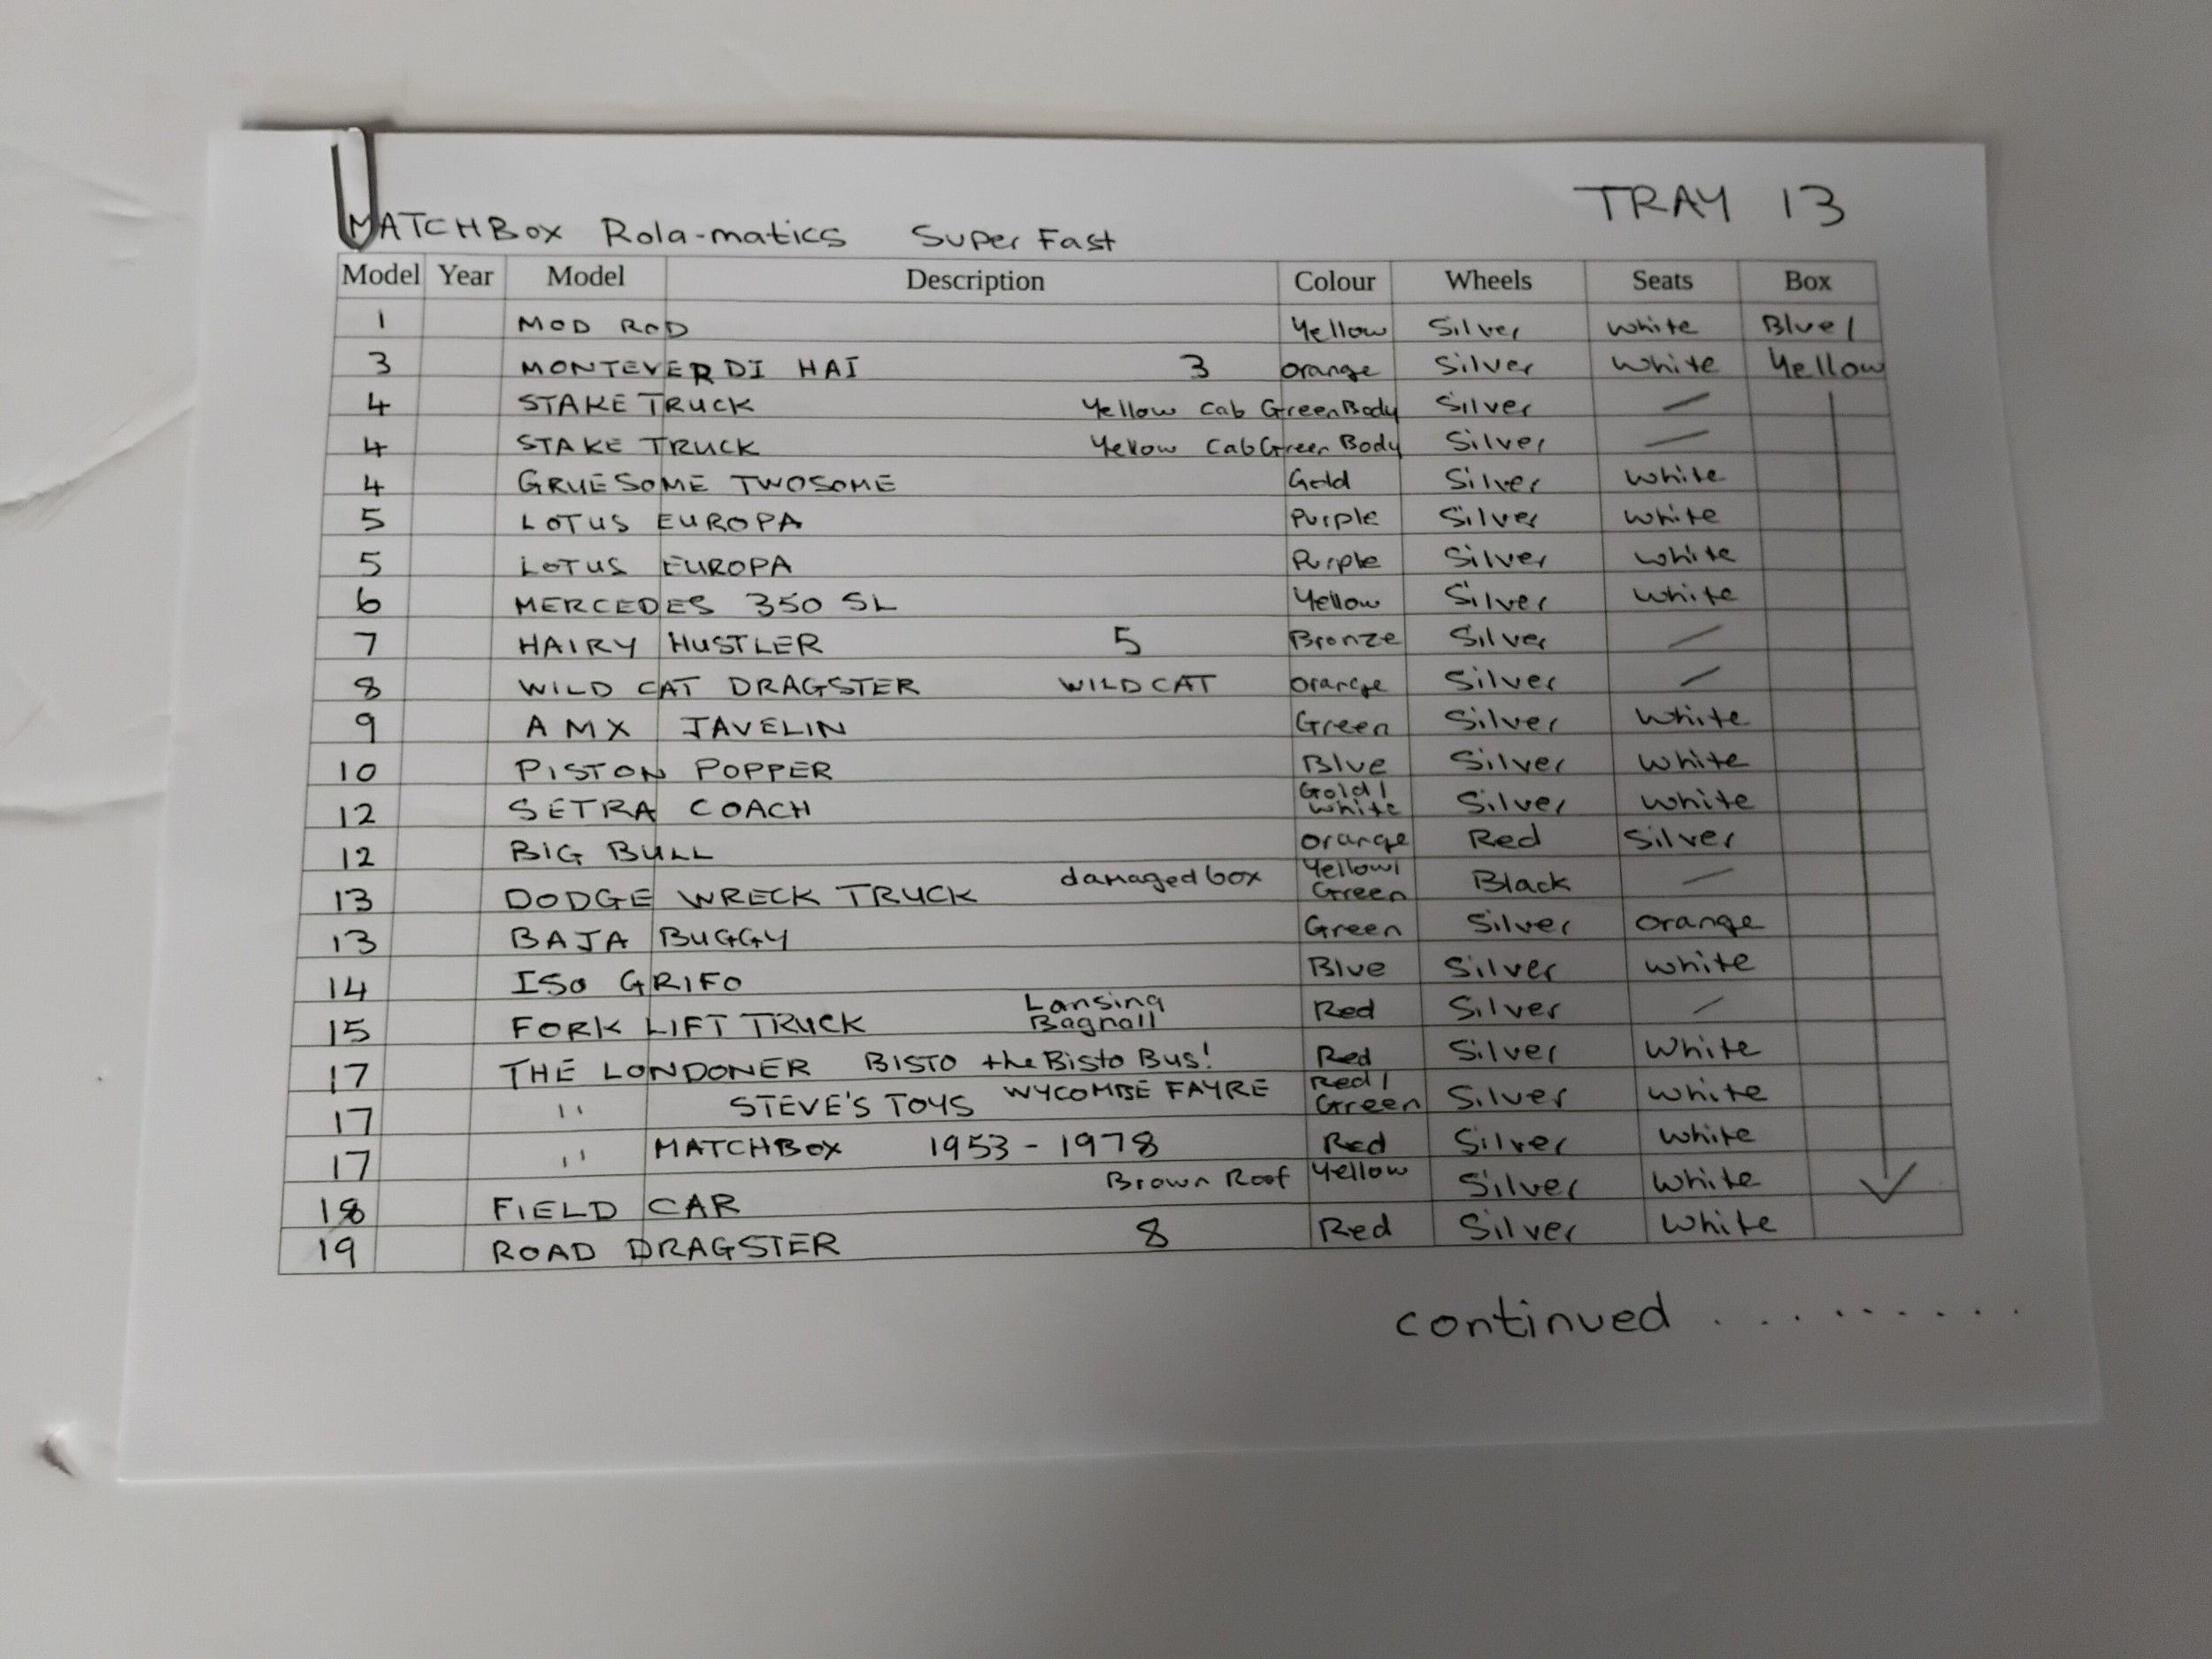 TRAY 13
MATCHBOX Rola-matics Super Fast
Model Year Model Description Colour Wheels Seats Box
1 MOD ROD Yellow Silver White Blue/
3 MONTEVERDI HAI 3 Orange Silver White Yellow
4 STAKE TRUCK Yellow Cab Green Body Silver —
4 STAKE TRUCK Yellow Cab Green Body Silver —
4 GRUESOME TWOSOME Gold Silver White
5 LOTUS EUROPA Purple Silver White
5 LOTUS EUROPA Purple Silver White
6 MERCEDES 350 SL Yellow Silver White
7 HAIRY HUSTLER 5 Bronze Silver —
8 WILD CAT DRAGSTER WILD CAT Orange Silver —
9 AMX JAVELIN Green Silver White
10 PISTON POPPER Blue Silver White
12 SETRA COACH Gold/ White Silver White
12 BIG BULL Orange Red Silver
13 DODGE WRECK TRUCK damaged box Yellow/ Green Black —
13 BAJA BUGGY Green Silver Orange
14 ISO GRIFO Blue Silver White
15 FORK LIFT TRUCK Lansing Bagnall Red Silver —
17 THE LONDONER BISTO the Bisto Bus! Red Silver White
17 " STEVE'S TOYS WYCOMBE FAYRE Red/ Green Silver White
17 " MATCHBOX 1953 - 1978 Red Silver White
18 FIELD CAR Brown Roof Yellow Silver White
19 ROAD DRAGSTER 8 Red Silver White
continued .........